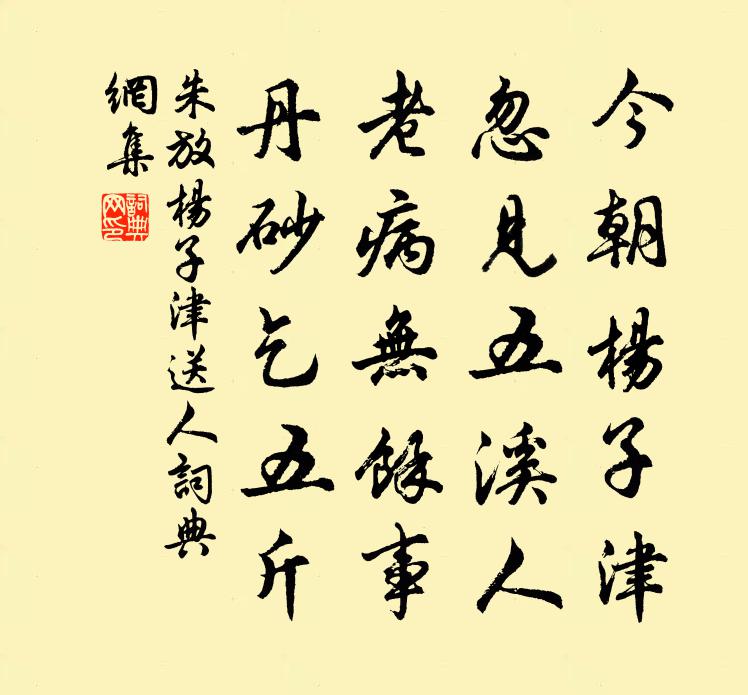 今朝楊子津
忽見五溪人
老病無餘事
丹砂乞五斤
朱放楊子津送人詞典
網集
詞典
网印